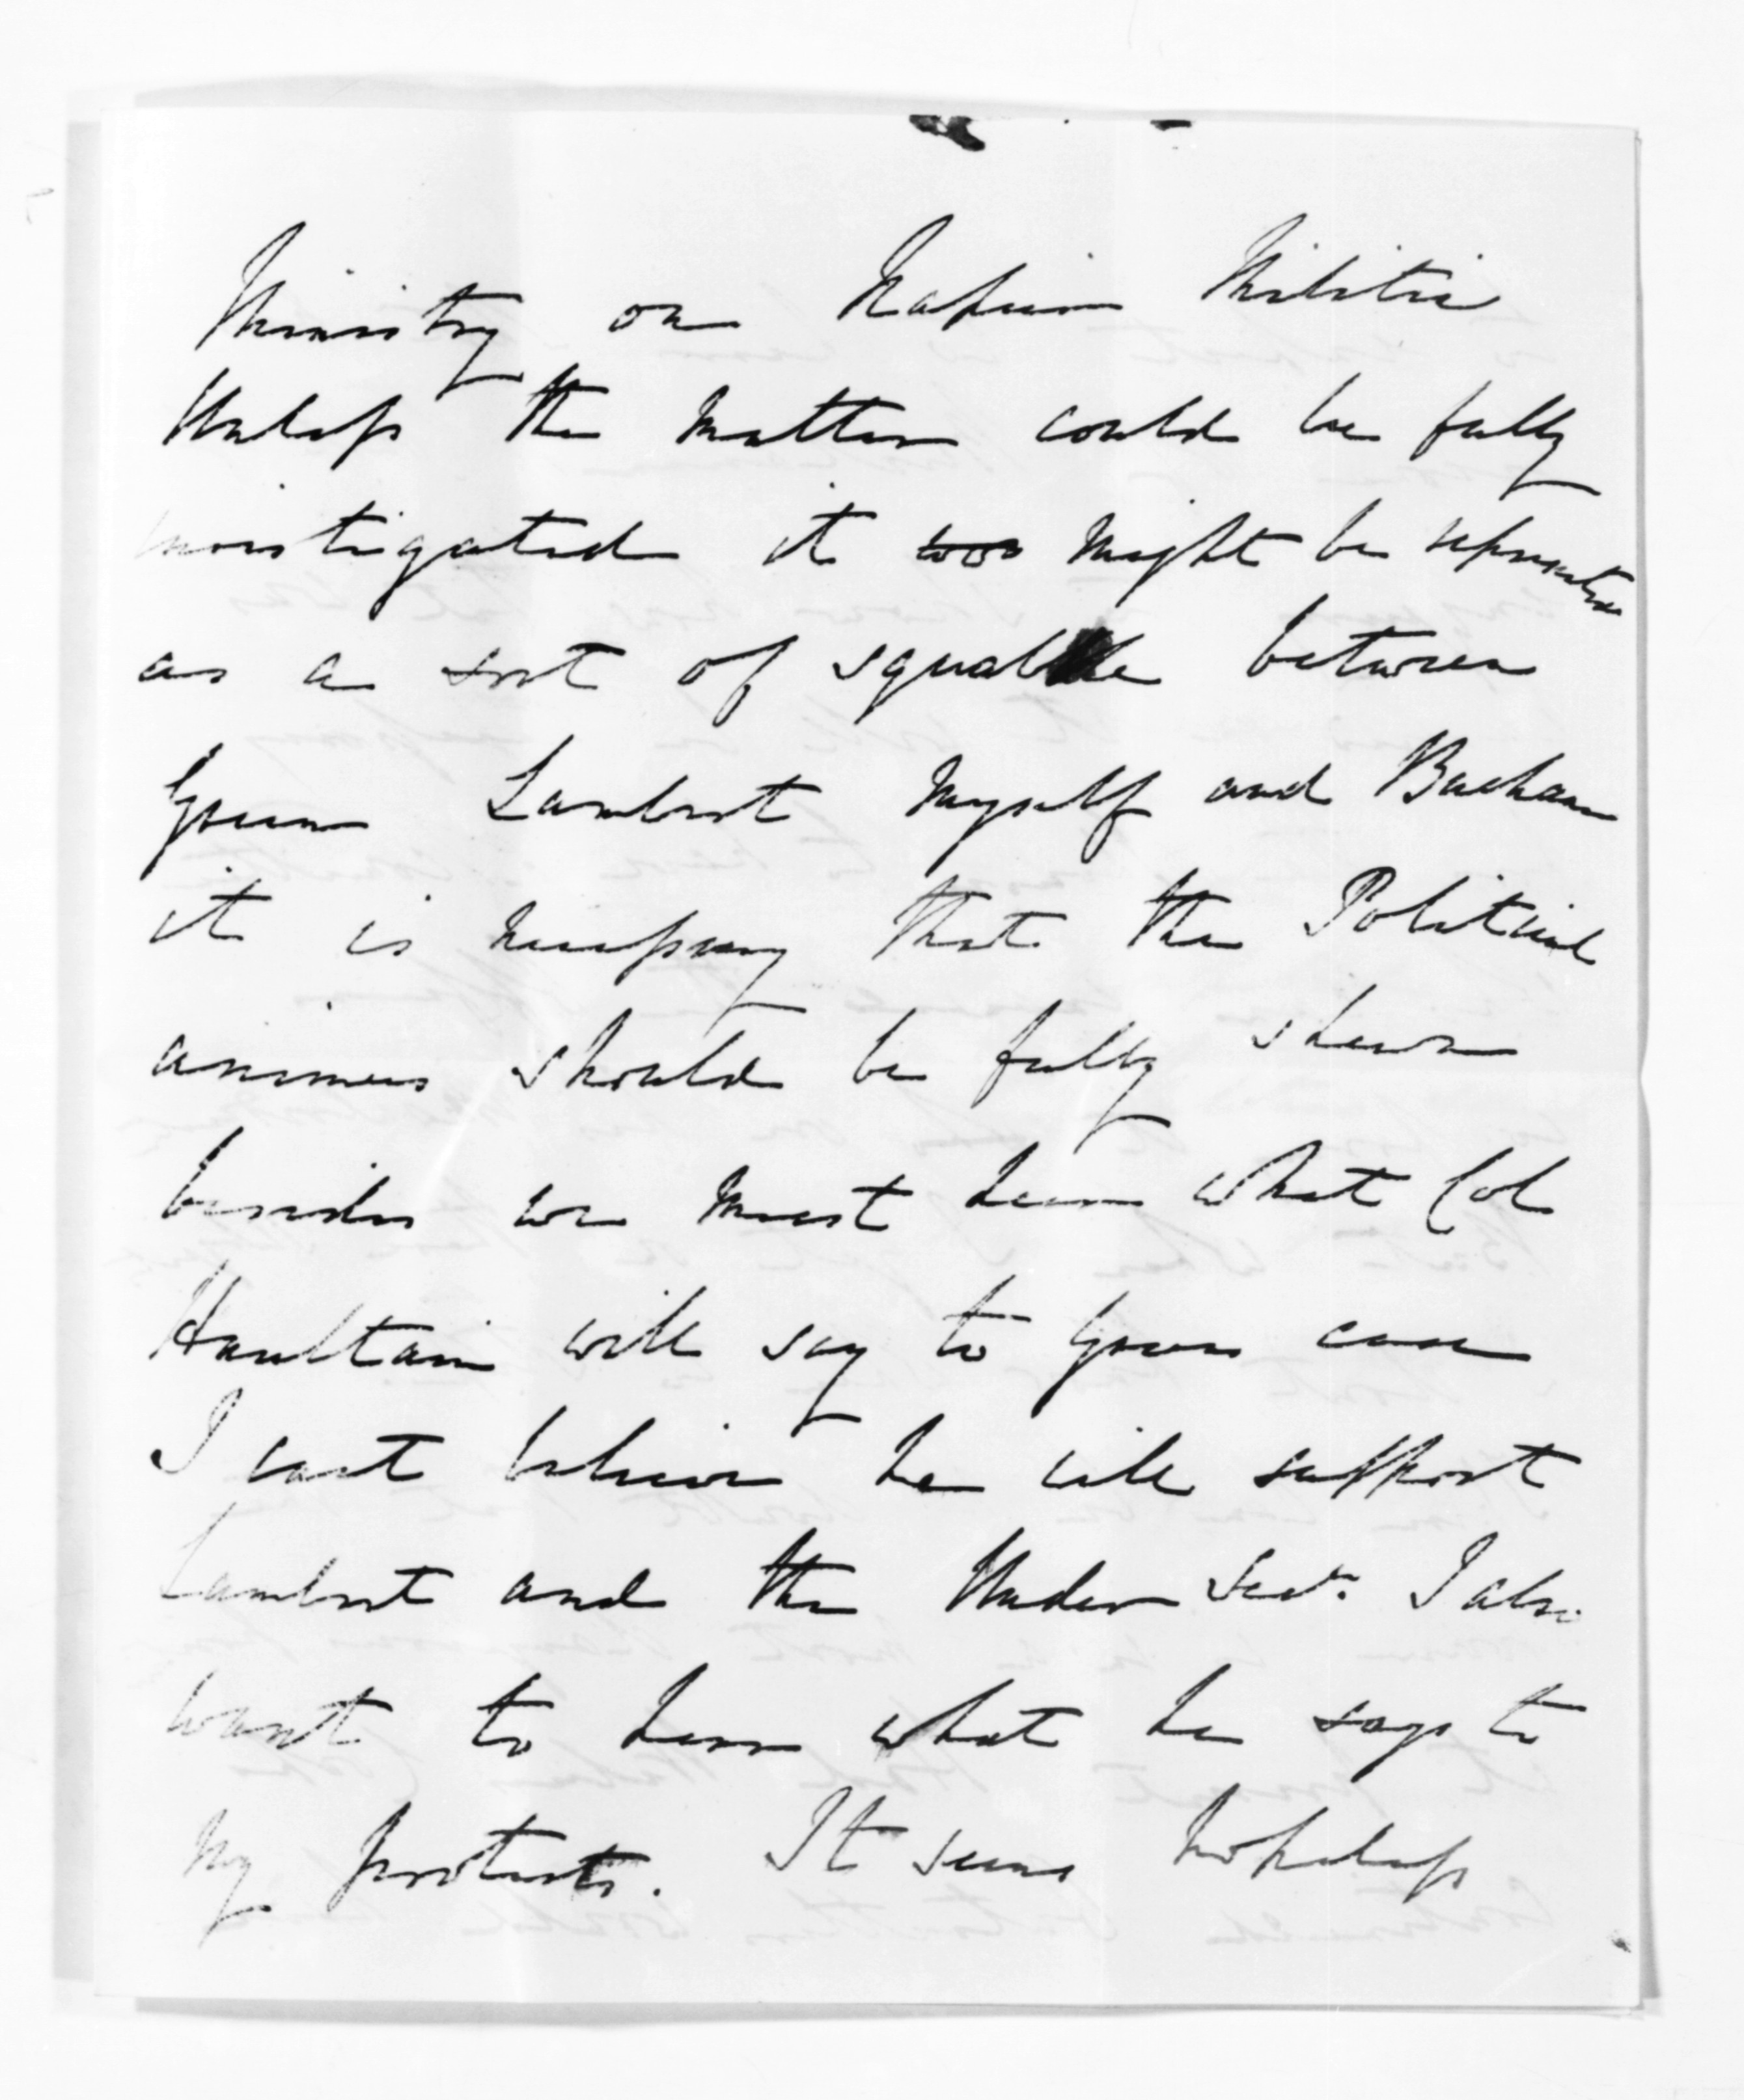 Ministry on Napier Militia
Unless the matter could be fully
investigated it was might be represented
as a sort of squabble between
Green Lambert myself and Buchanan
it is necessary that the Political
animus should be fully shewn
besides we must hear what Col
Haultain will say to Greens case
I cant believe he will support
Lambert and the Under Secty. I also
want to hear what he says to
my protests. It seems hopeless